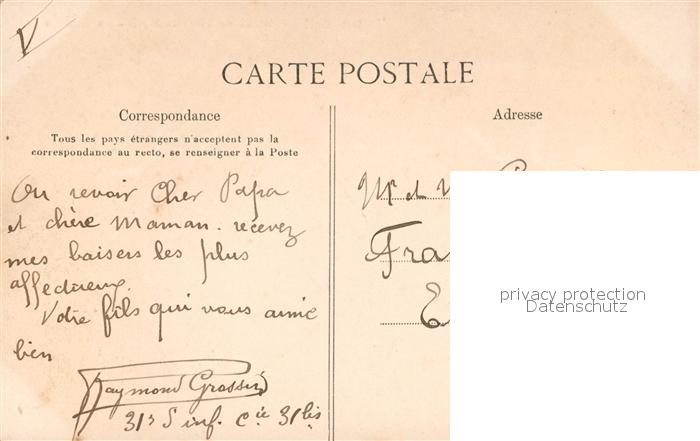 V
CARTE POSTALE
Correspondance
Tous les pays étrangers n'acceptent pas la
correspondance au recto, se renseigner à la Poste
Adresse
Au revoir Cher Papa
et chère Maman. recevez
mes baisers les plus
affectueux.
Votre fils qui vous aime
bien
Raymond
31 inf. Cie 31 bis
Mr et
Fra
E
privacy protection
Datenschutz